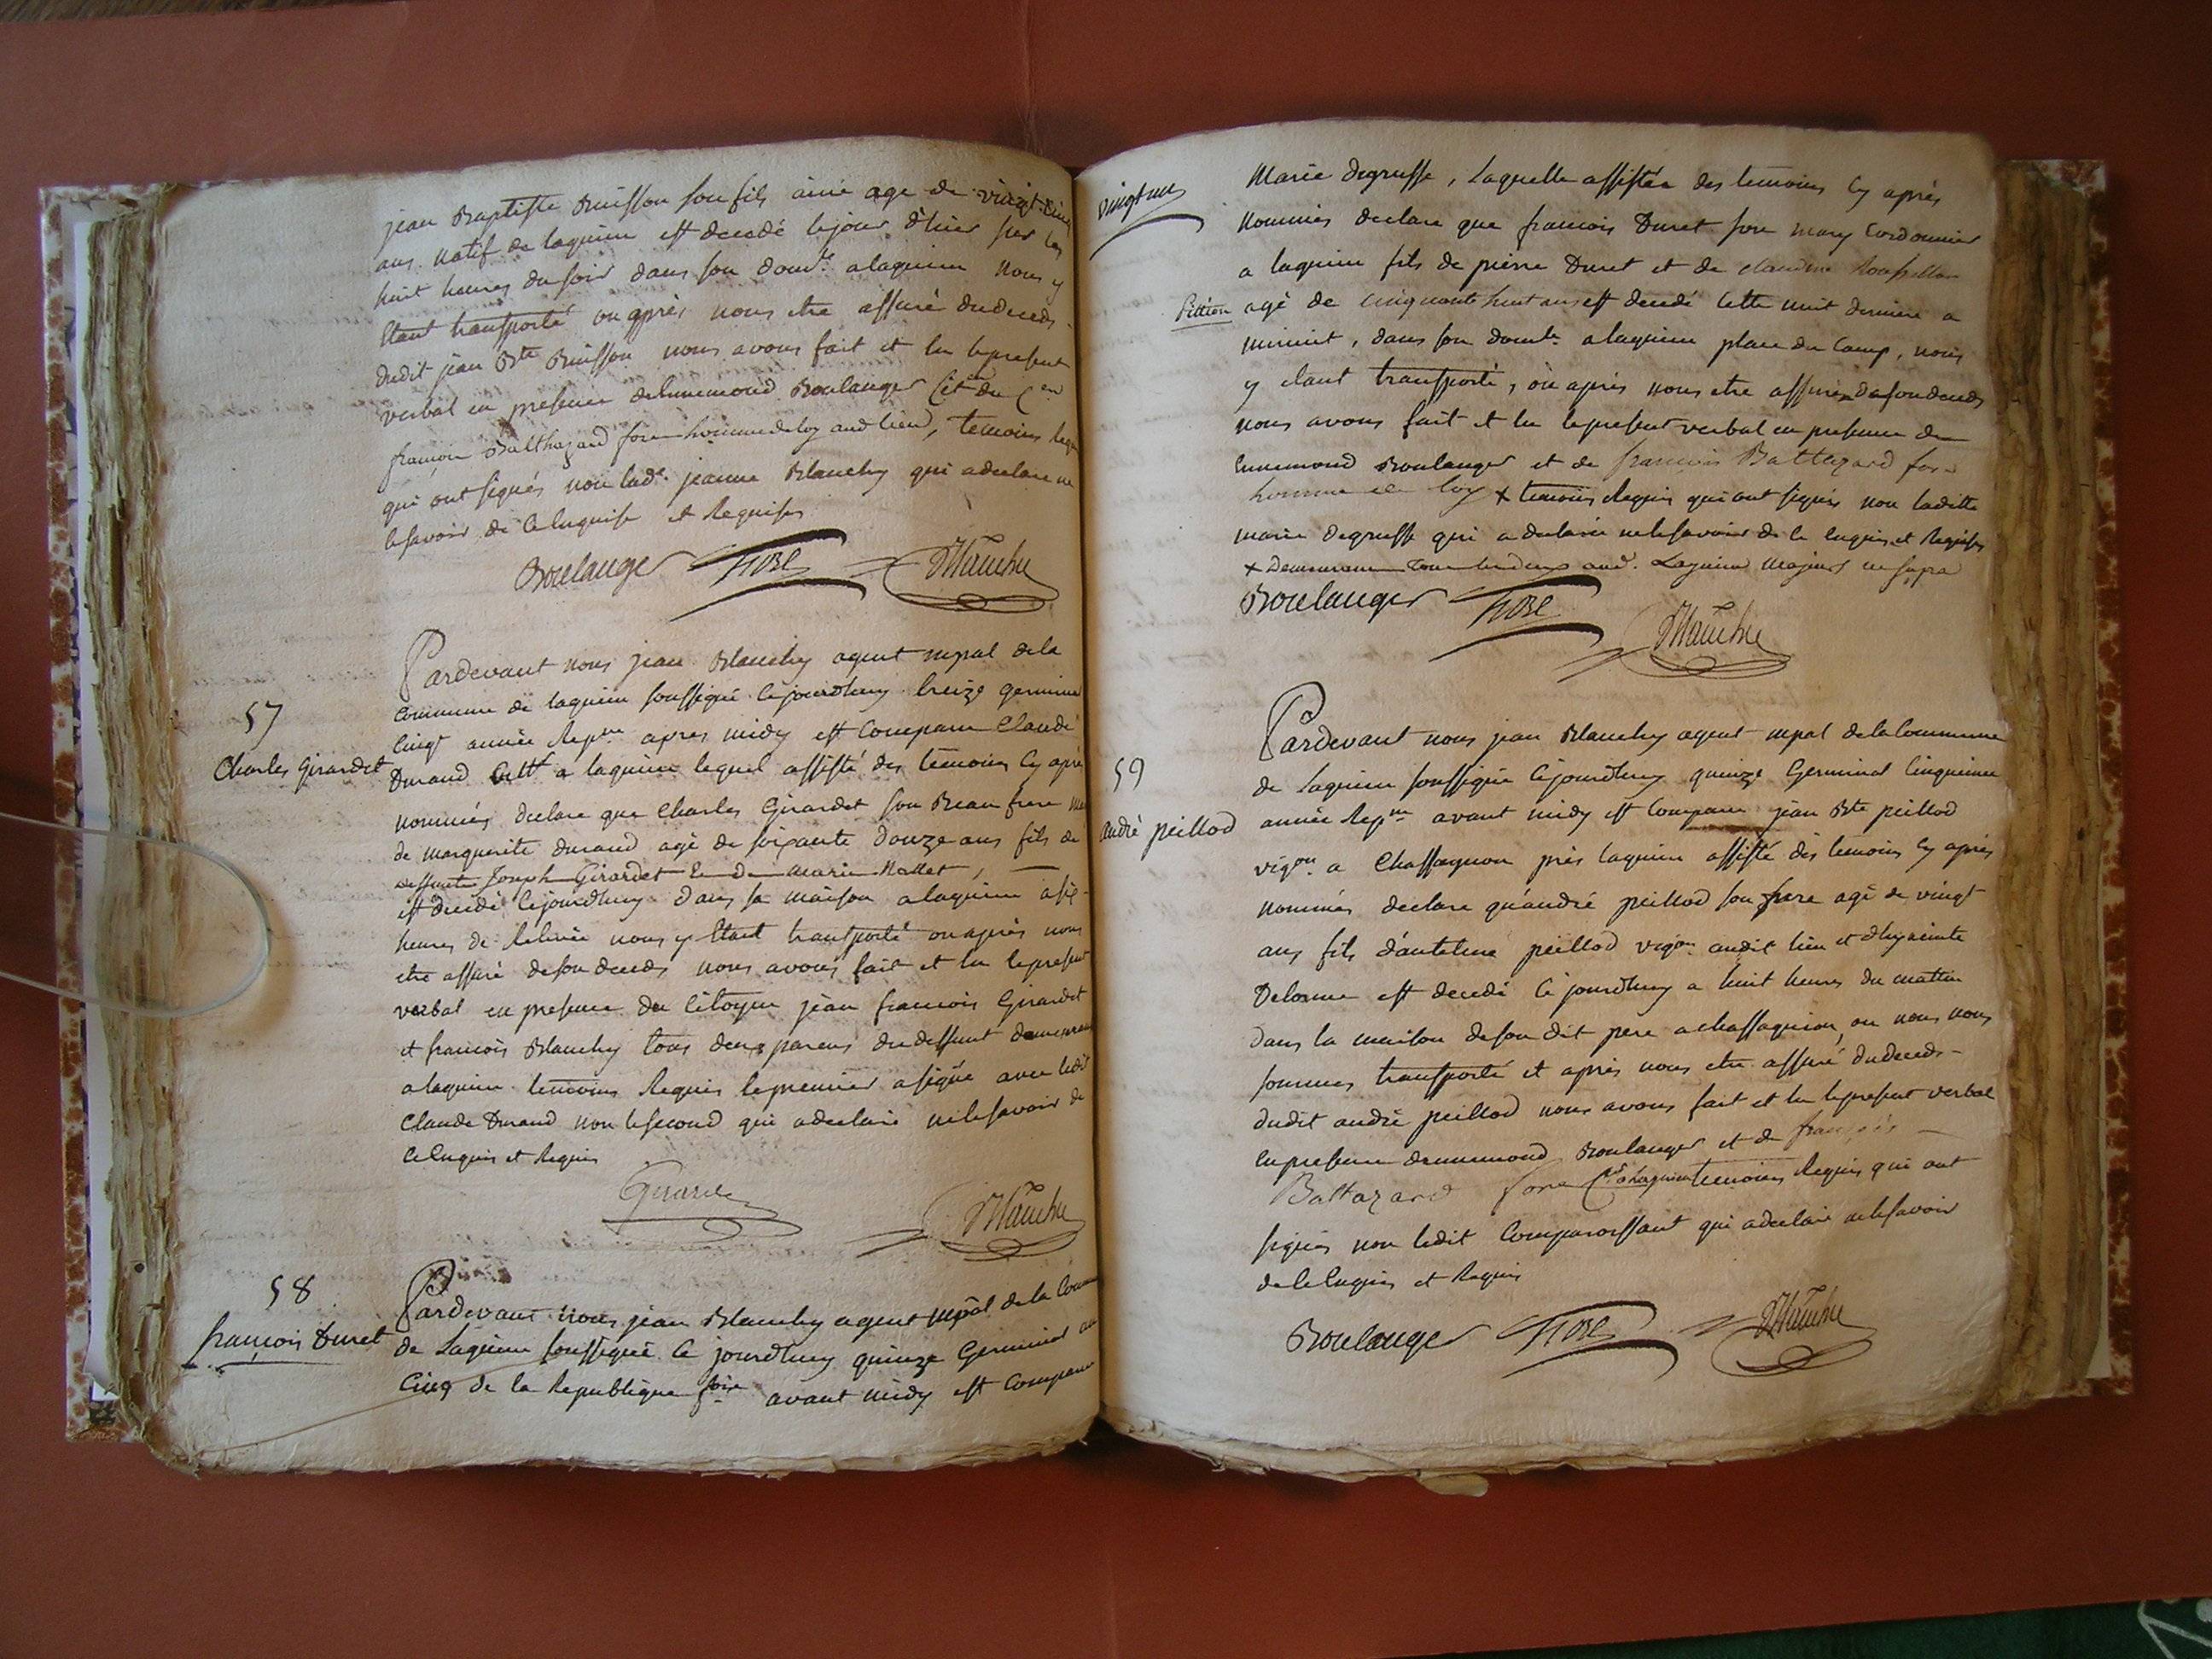 jean Baptiste Buisson son fils ainé age de vingt cinq
ans natif de lagnieu est decedé le jour d'hier sur les
huit heures du soir dans son domle a lagnieu nous y
Etant transporté ou après nous etre assuré du deceds
dudit jean Bte Buisson nous avons fait et lu le present
verbal en presence dennemond Boulanger et du Cen
françois Balthazard fore homme de loy aud lieu, temoins requis
qui ont signés non lade jeanne Blanchy qui a declaré ne
le savoir de ce Enquise et Requise
Boulanger fore Blanchy
57
Charles Girardet
Pardevant nous jean Blanchy agent mpal de la
Commune de lagnieu soussigné Cejourdhuy treize germinal
Cinqe année Repne apres midy est Comparu Claude
Durand Cultr a lagnieu lequel assisté des temoins Cy après
nommés declare que Charles Girardet son Beau frere
de marguerite durand agé de soixante douze ans fils de
deffunts Joseph Girardet & de Marie Mallet,
est decedé Cejourdhuy dans sa maison a lagnieu a six
heures de Relevée nous y Etant transporté ou après nous
etre assuré deson deceds nous avons fait et lu le present
verbal en presence du Citoyen jean francois Girardet
et francois Blanchy tous deux parens du deffunt demeurant
a lagnieu temoins Requis le premier a signé avec ledit
Claude Durand non le second qui a declaré ne le savoir de
Ce Enquis et Requis
Girardet Blanchy
58
françois Duret
Pardevant nous jean Blanchy agent mpal de la Commune
de Lagnieu soussigné Ce jourdhuy quinze Germinal an
Cinq de la Republique fse avant midy est Comparue
vingt un
Marie degrusse, Laquelle assistée des temoins Cy après
Nommés declare que francois Duret son mary Cordonnier
a lagnieu fils de pierre Duret et de claudine Roussillon
agé de cinquante huit ans est decedé Cette nuit derniere a
minuit, dans son domle a lagnieu place du Camp, nous
y etant transporté, où après nous etre assuré de son deceds
nous avons fait et lu le present verbal en presence de
Ennemond Boulanger et de francois Baltazard fore
homme de loy x temoins Requis qui ont signés non ladite
marie degrusse qui a declarée ne le savoir de ce enquise et Requise
x demeurans tous les deux aud. Lagnieu Majeurs
Boulanger fore Blanchy
59
andré peillod
Pardevant nous jean Blanchy agent mpal de la Commune
de Lagnieu soussigné Cejourdhuy quinze Germinal Cinquieme
année Repne avant midy est Comparu jean Bte peillod
vigon a Chassagnon près lagnieu assisté des temoins Cy après
nommés declare qu'andré peillod son frere agé de vingt
ans fils d'antelme peillod vigon audit lieu et d'hyacinte
Delorme est decedé Ce jourdhuy a huit heures du mattin
dans la maison de son dit pere a chassagnion, ou nous nous
sommes transporté et après nous etre assuré du deceds
dudit andré peillod nous avons fait et lu le present verbal
en presence dennemond Boulanger et de françois
Baltazard fore a Lagnieu temoins Requis qui ont
signés non ledit Comparoissant qui a declaré ne le savoir
de ce Enquis et Requis
Boulanger fore Blanchy